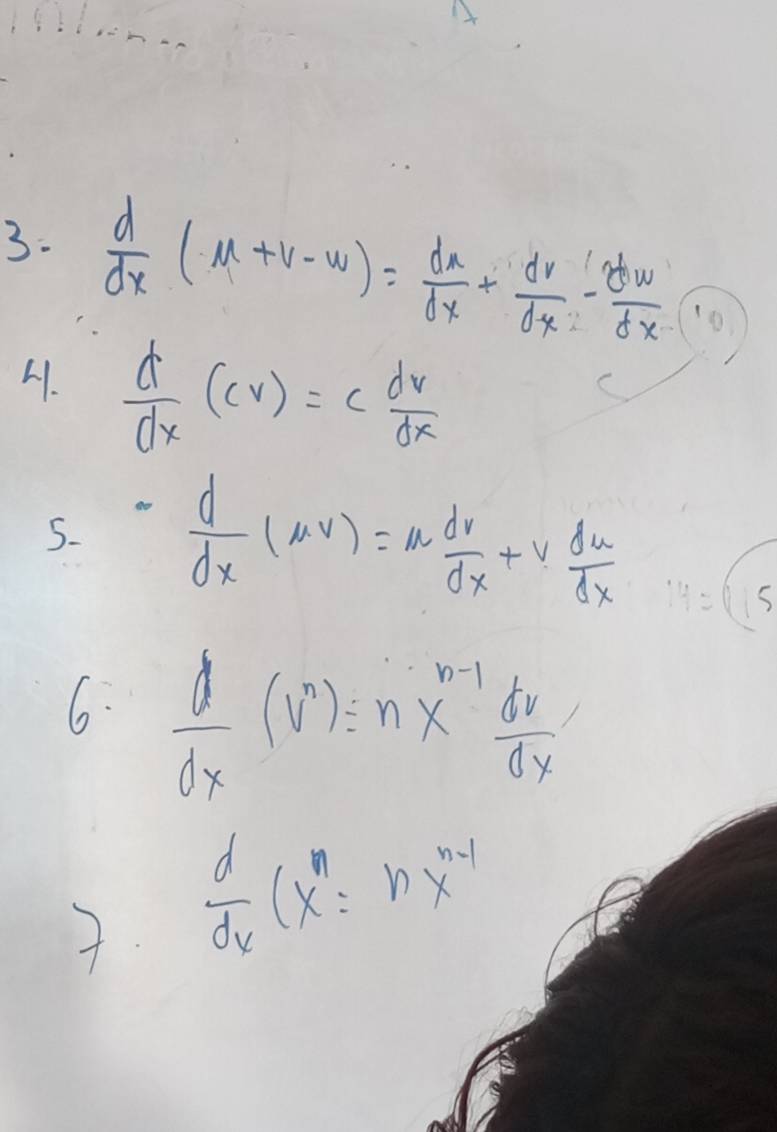 3- d/dx (u + v - w) = du/dx + dv/dx - dw/dx
4. d/dx (cv) = c dv/dx
5- d/dx (uv) = u dv/dx + v du/dx
6- d/dx (vⁿ) = n xⁿ⁻¹ dv/dx
7. d/dx (xⁿ = n xⁿ⁻¹